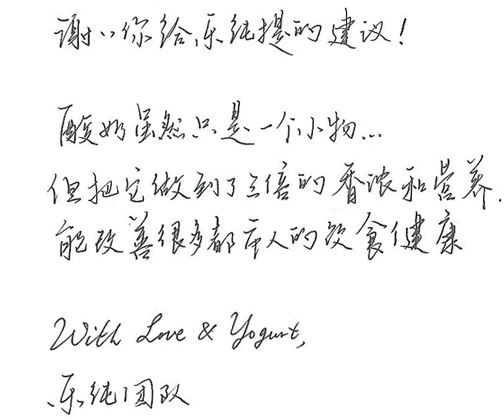 谢谢你给乐纯提的建议！
酸奶虽然只是一个小物…
但把它做到了三倍的香浓和营养，
能改善很多都市人的饮食健康
With Love & Yogurt,
乐纯团队